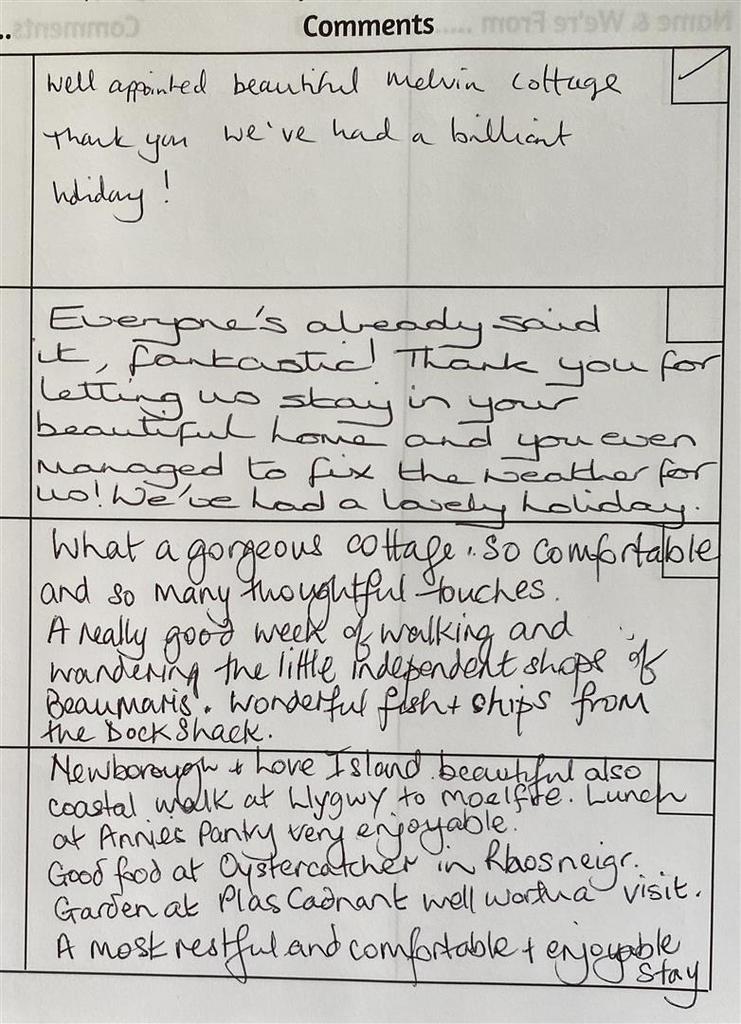 Comments
Well appointed beautiful Melvin Cottage
Thank you we've had a brilliant
holiday!
Everyone's already said
it, fantastic! Thank you for
letting us stay in your
beautiful home and you even
managed to fix the weather for
us! We've had a lovely holiday.
What a gorgeous cottage. So comfortable
and so many thoughtful touches.
A really good week of walking and
wandering the little independent shops of
Beaumaris. Wonderful fish + chips from
the Dock Shack.
Newborough + Love Island beautiful also
coastal walk at Llygwy to Moelfre. Lunch
at Annies Pantry very enjoyable.
Good food at Oystercatcher in Rhosneigr.
Garden at Plas Cadnant well worth a visit.
A most restful and comfortable + enjoyable
stay